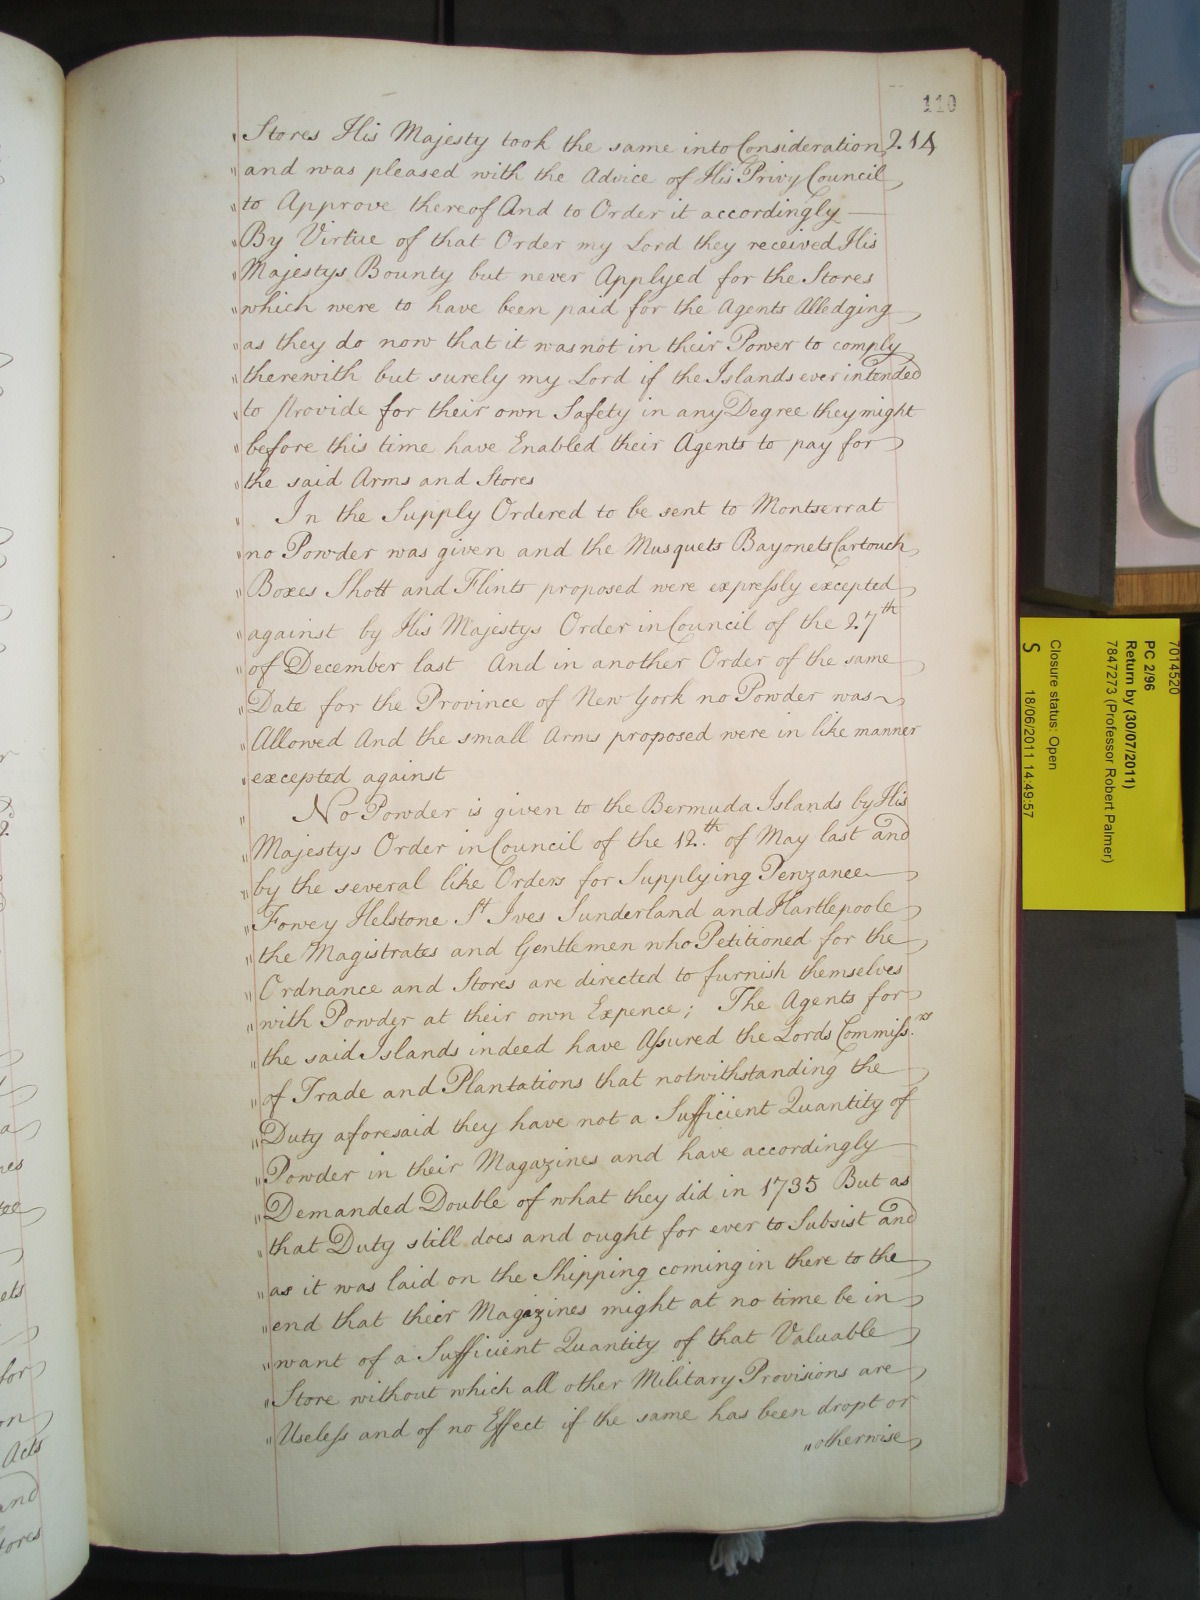 110
" Stores His Majesty took the same into Consideration 214
" and was pleased with the Advice of His Privy Council
" to Approve thereof And to Order it accordingly —
" By Virtue of that Order my Lord they received His
" Majestys Bounty but never Applyed for the Stores
" which were to have been paid for the Agents Alledging
" as they do now that it was not in their Power to comply
" therewith but surely my Lord if the Islands ever intended
" to Provide for their own Safety in any Degree they might
" before this time have Enabled their Agents to pay for
" the said Arms and Stores
" In the Supply Ordered to be sent to Montserrat
" no Powder was given and the Musquets Bayonets Cartouch
" Boxes Shott and Flints proposed were expressly excepted
" against by His Majestys Order in Council of the 27th
" of December last And in another Order of the same
" Date for the Province of New York no Powder was
" Allowed And the small Arms proposed were in like manner
" excepted against
" No Powder is given to the Bermuda Islands by His
" Majestys Order in Council of the 12.th of May last and
" by the several like Orders for Supplying Penzance
" Fowey Helstone St Ives Sunderland and Hartlepoole
" the Magistrates and Gentlemen who Petitioned for the
" Ordnance and Stores are directed to furnish themselves
" with Powder at their own Expence; The Agents for
" the said Islands indeed have Assured the Lords Commiss.rs
" of Trade and Plantations that notwithstanding the
" Duty aforesaid they have not a Sufficient Quantity of
" Powder in their Magazines and have accordingly
" Demanded Double of what they did in 1735 But as
" that Duty still does and ought for ever to Subsist and
" as it was laid on the Shipping coming in there to the
" end that their Magazines might at no time be in
" want of a Sufficient Quantity of that Valuable
" Store without which all other Military Provisions are
" Useless and of no Effect if the same has been dropt or
" otherwise
7014520
PC 2/96
Return by (30/07/2011)
7847273 (Professor Robert Palmer)
Closure status: Open
S 18/06/2011 14:49:57